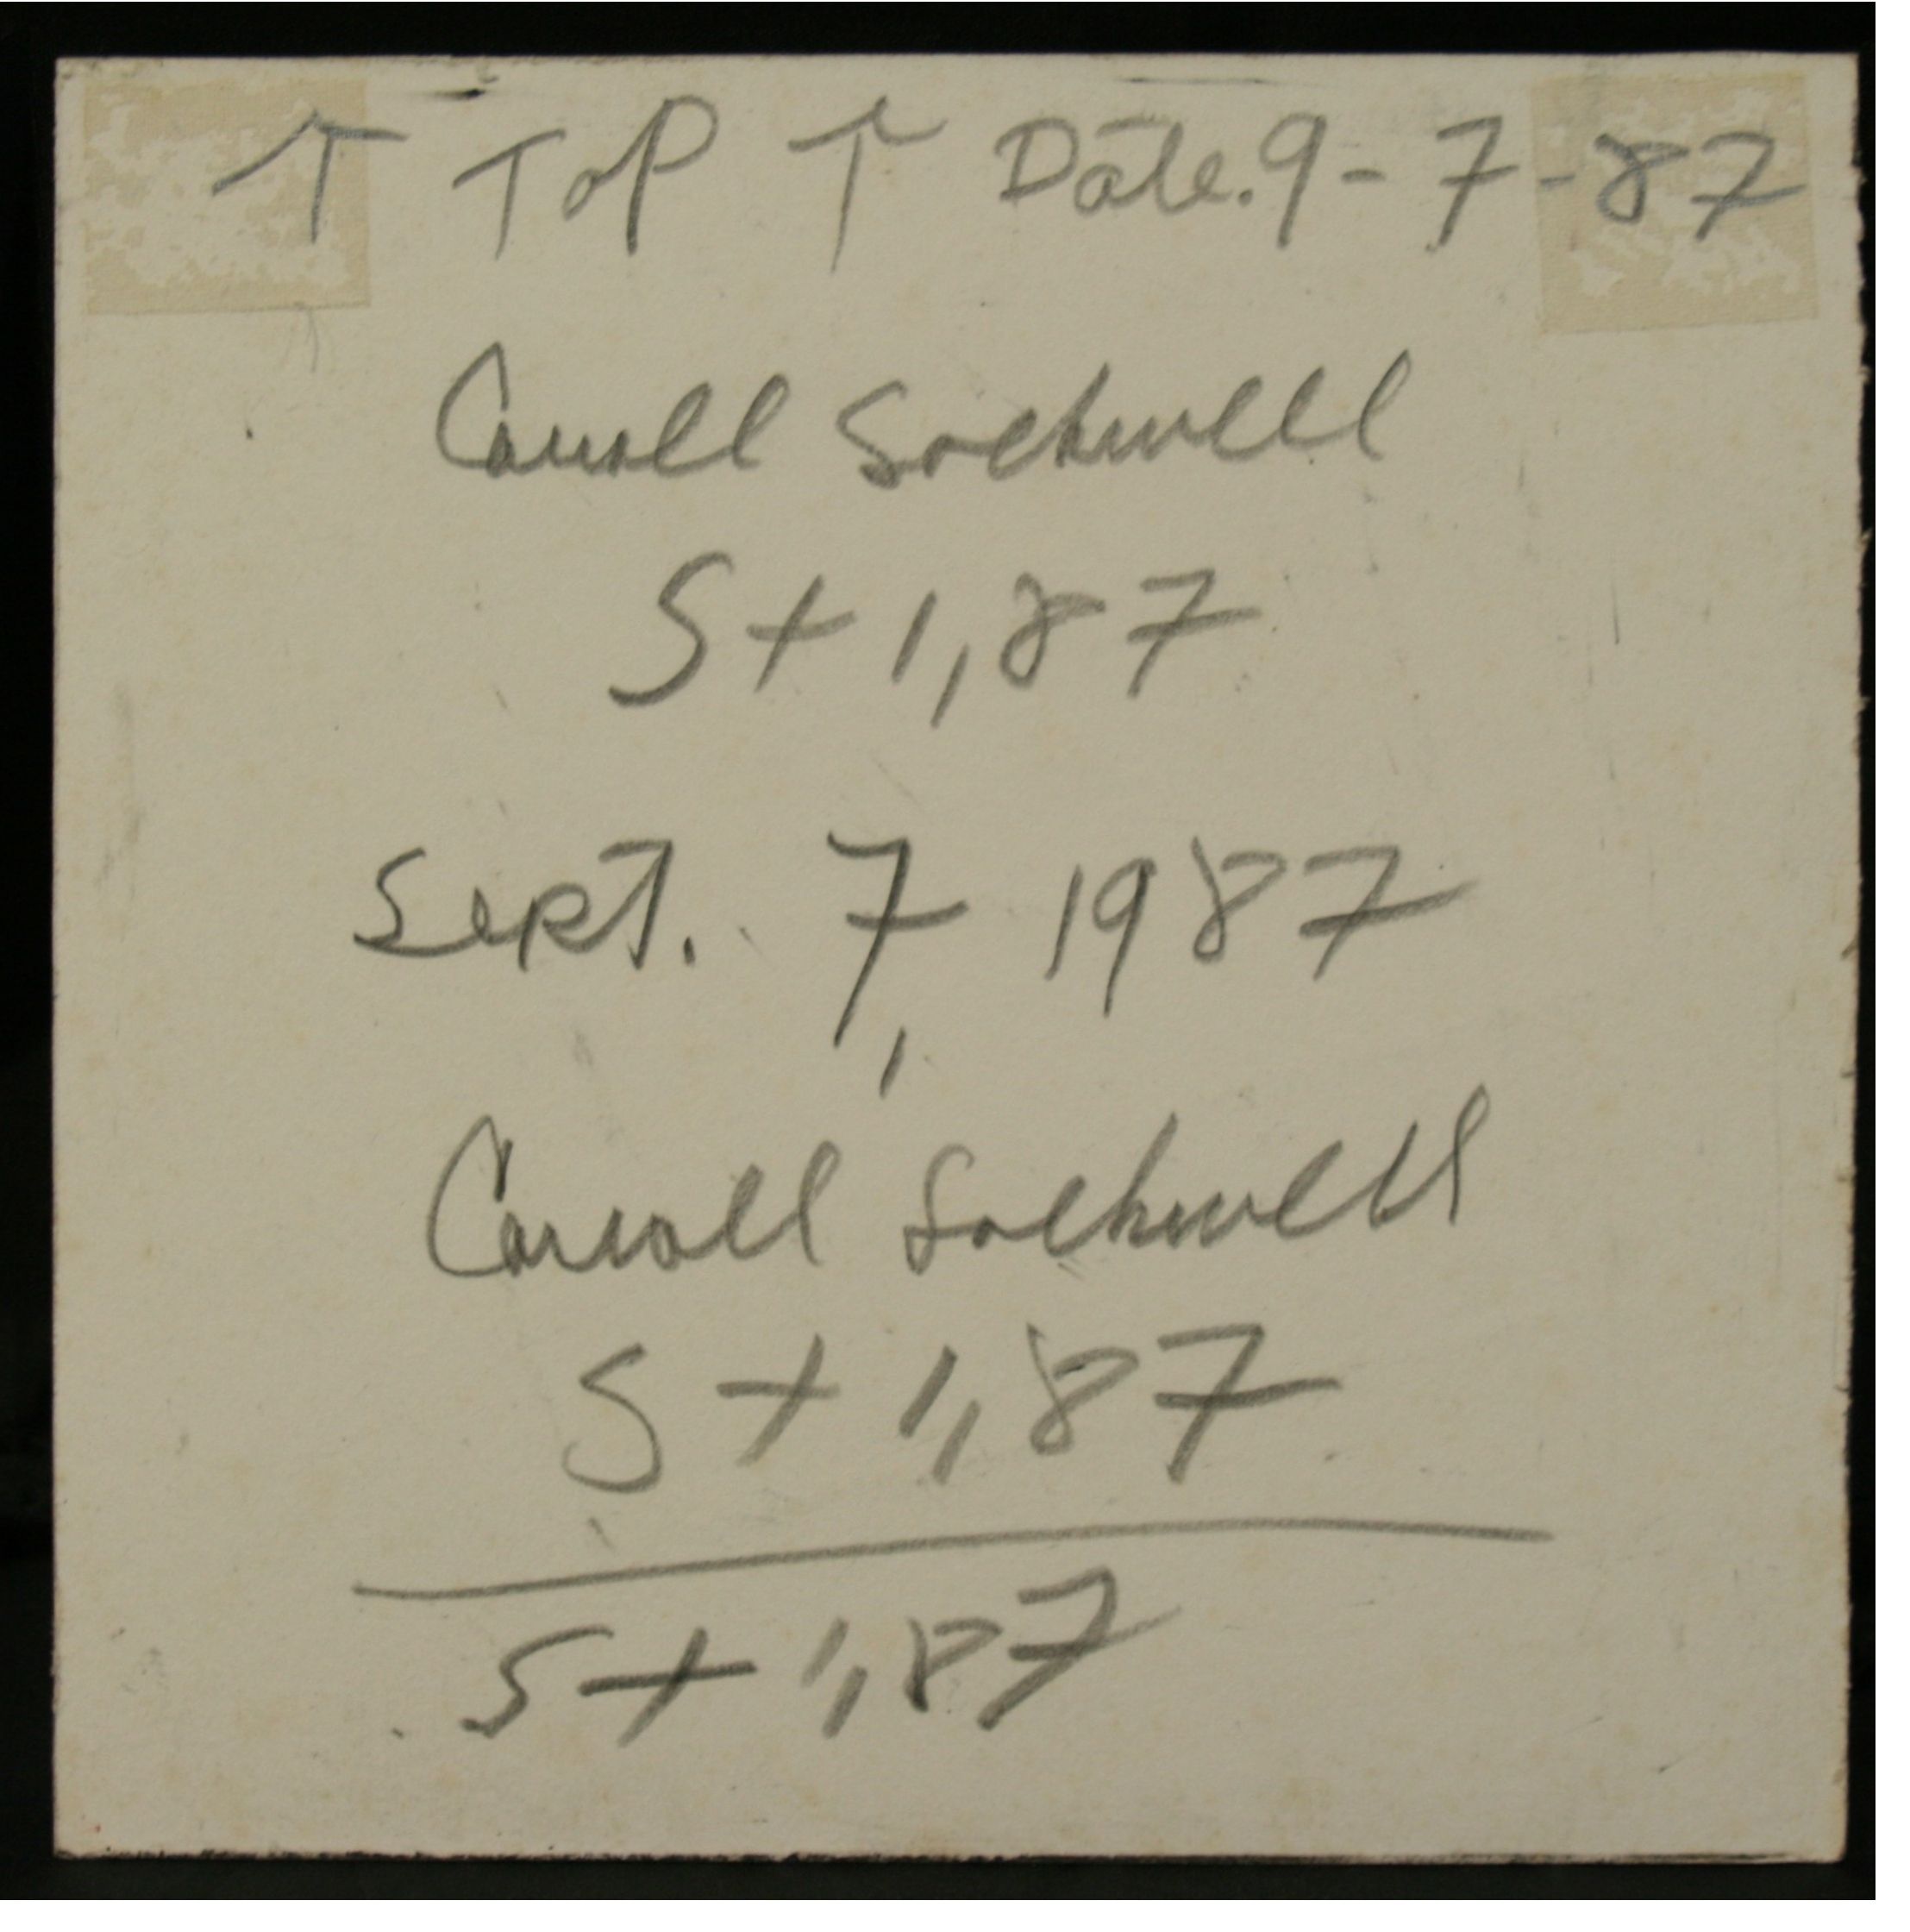 ↑ ToP ↑ Date. 9-7-87
Carroll Sockwell
S+1,87
Sept. 7, 1987
Carroll Sockwell
S+1,87
S+1,87